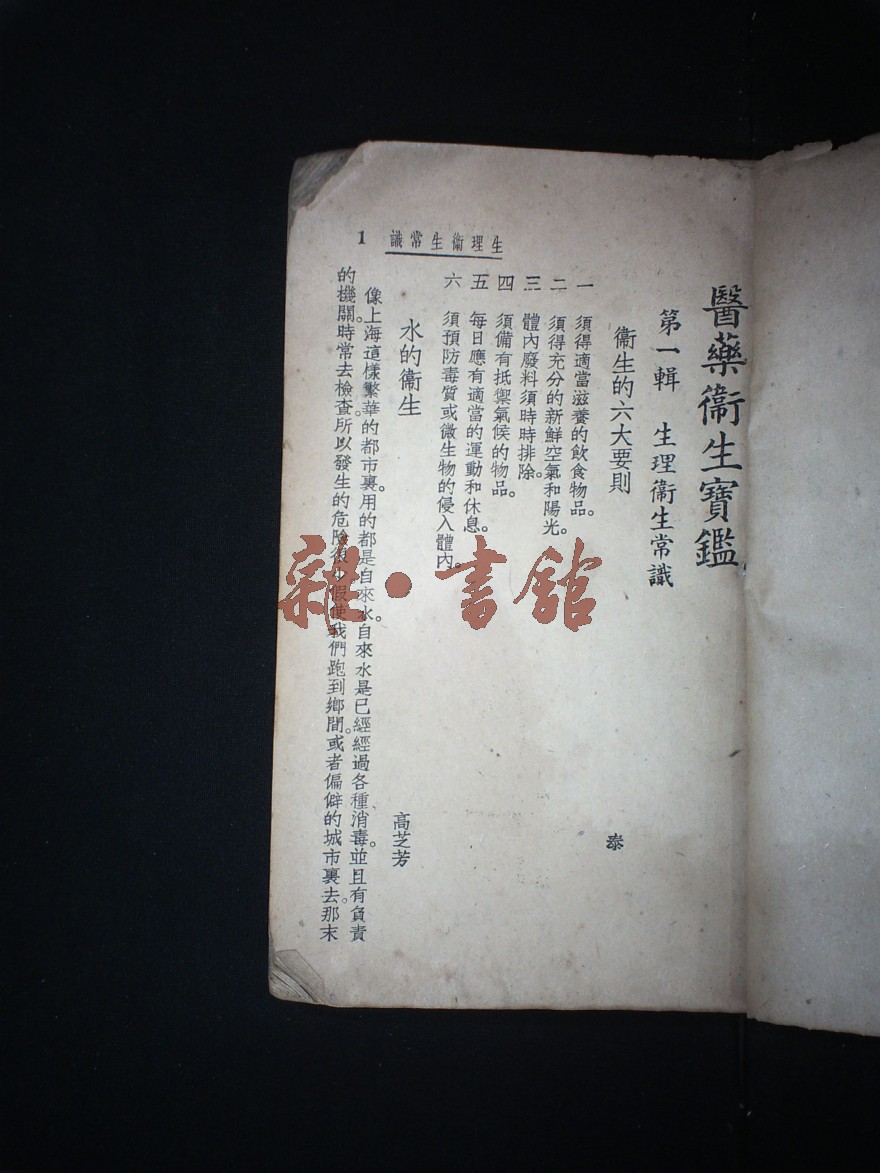 醫藥衞生寶鑑
第一輯 生理衞生常識
衞生的六大要則 泰
一 須得適當滋養的飲食物品。
二 須得充分的新鮮空氣和陽光。
三 體內廢料須時時排除。
四 須備有抵禦氣候的物品。
五 每日應有適當的運動和休息。
六 須預防毒質或微生物的侵入體內。
水的衞生 高芝芳
像上海這樣繁華的都市裏。用的都是自來水。自來水是已經經過各種消毒。並且有負責
的機關。時常去檢查。所以發生的危險很少。假使我們跑到鄉間。或者偏僻的城市裏去。那末
生理衞生常識 1
雜·書舘